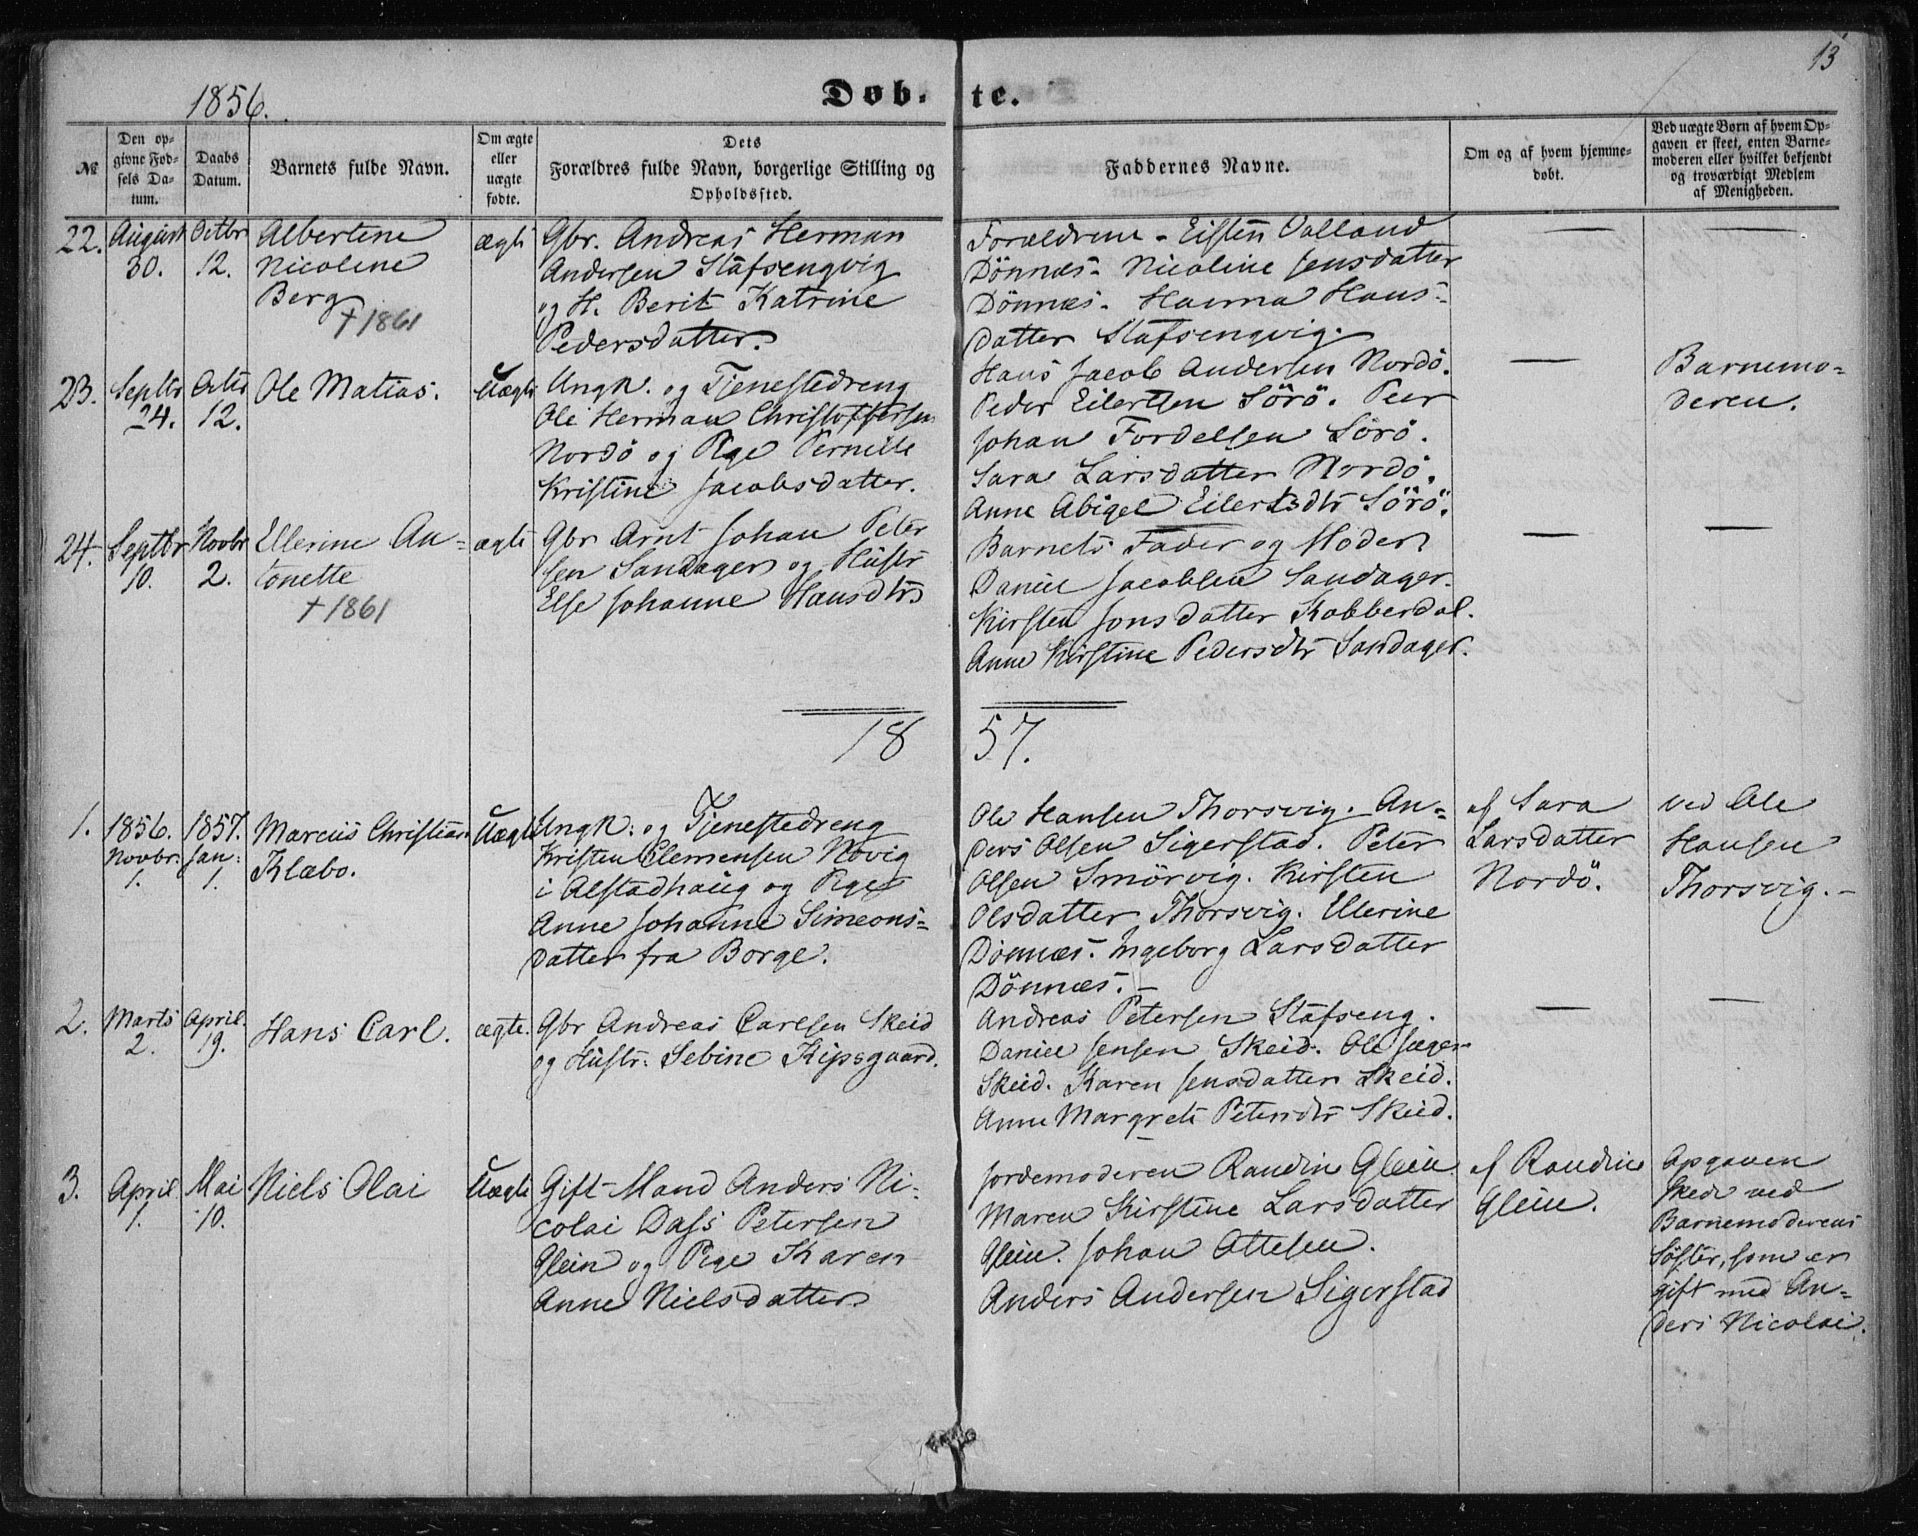 13
1856.
Døb- te.
№
Den op-
givne Fød-
sels Da-
tum.
Daabs
Datum.
Barnets fulde Navn.
Om ægte
eller
uægte
fødte.
Dets
Forældres fulde Navn, borgerlige Stilling og
Opholdssted.
Faddernes Navne.
Om og af hvem hjemme-
døbt.
Ved uægte Børn af hvem Op-
gaven er skeet, enten Barne-
moderen eller hvilket bekjendt
og troværdigt Medlem
af Menigheden.
22.
August
30.
Octbr
12.
Albertine
Nicoline
Berg
† 1861
ægte
Gbr. Andreas Herman
Andersen Stafsengvig
og H. Berit Katrine
Pedersdatter.
Forældrene - Eisten Valland
Dönnæs - Nicoline Jensdatter
Dönnæs - Hanna Hans-
datter Stafsengvig.
23.
Septbr
24.
Octbr
12.
Ole Matias.
Uægte
Ungk. og Tjenestedreng
Ole Herman Christoffersen
Nordö og Pige Pernille
Kristine Jacobsdatter.
Hans Jacob Andersen Nordö.
Peder Eilertsen Sörö. Peer
Johan Fordelsen Sörö.
Sara Larsdatter Nordö.
Anne Abigel Eilertsdtr Sörö.
Barnemo-
deren.
24.
Septbr
10.
Novbr
2.
Ellerine An-
tonette
† 1861
ægte
Gbr Arnt Johan Peter
sen Sandager og Hustr
Else Johanne Hansdtr
Barnets Fader og Moder
Daniel Jacobsen Sandager.
Kirsten Jonsdatter Kobberdal.
Anne Kirstine Pedersdtr Sandager.
18 57.
1.
1856.
Novbr:
1.
1857.
Jan:
1.
Marcus Christian
Klæbo.
Uægte
Ungk: og Tjenestedreng
Kristen Clemensen Novig
i Alstadhaug og Pige
Anne Johanne Simeons-
datter fra Borge.
Ole Hansen Thorsvig. An-
ders Olsen Sigerstad. Peter
Olsen Smörvig. Kirsten
Olsdatter Thorsvig. Ellerine
Dönnæs. Ingeborg Larsdatter
Dönnæs. -
af Sara
Larsdatter
Nordö.
ved Ole
Hansen
Thorsvig. -
2.
Marts
2.
April.
19.
Hans Carl.
ægte.
Gbr Andreas Carlsen Skeid
og Hustr: Sebine Kipsgaard.
Andreas Petersen Stafseng.
Daniel Jensen Skeid. Ole Jæger
Skeid. Karen Jensdatter Skeid.
Anne Margrete Petersdtr Skeid.
3.
April
1.
Mai
10.
Niels Olai
Uægte
Gift Mand Anders Ni-
colai Dass Petersen
Glein og Pige Karen
Anne Nielsdatter
Jordemoderen Randine Glein
Maren Kirstine Larsdatter
Glein. Johan Ottesen.
Anders Andersen Sigerstad
af Randine
Glein.
Opgaven
skede ved
Barnemoderens
Söster, som er
gift med An-
ders Nicolai.